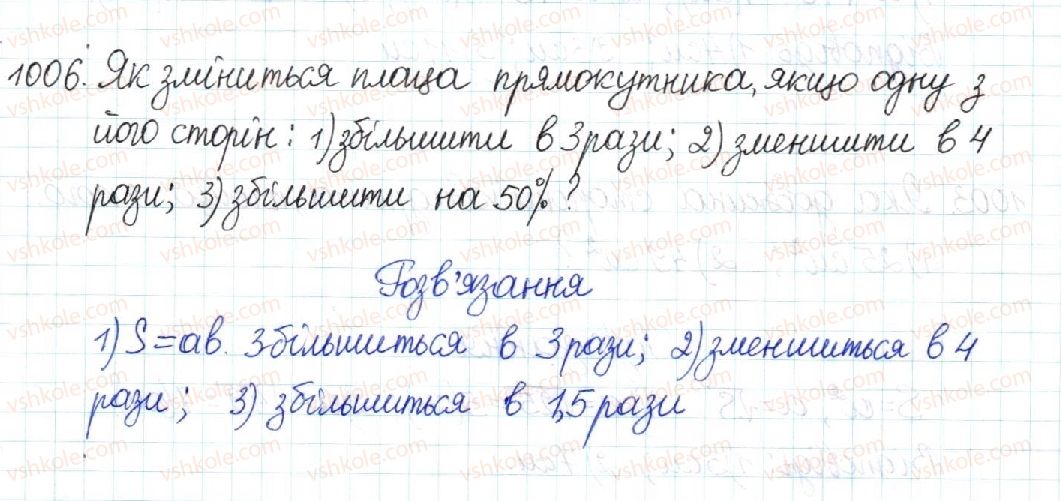 1006. Як зміниться площа прямокутника, якщо одну з
його сторін: 1) збільшити в 3 рази; 2) зменшити в 4
рази; 3) збільшити на 50%?
Розв'язання
1) S = ab. Збільшиться в 3 рази; 2) зменшиться в 4
рази; 3) збільшиться в 1,5 рази